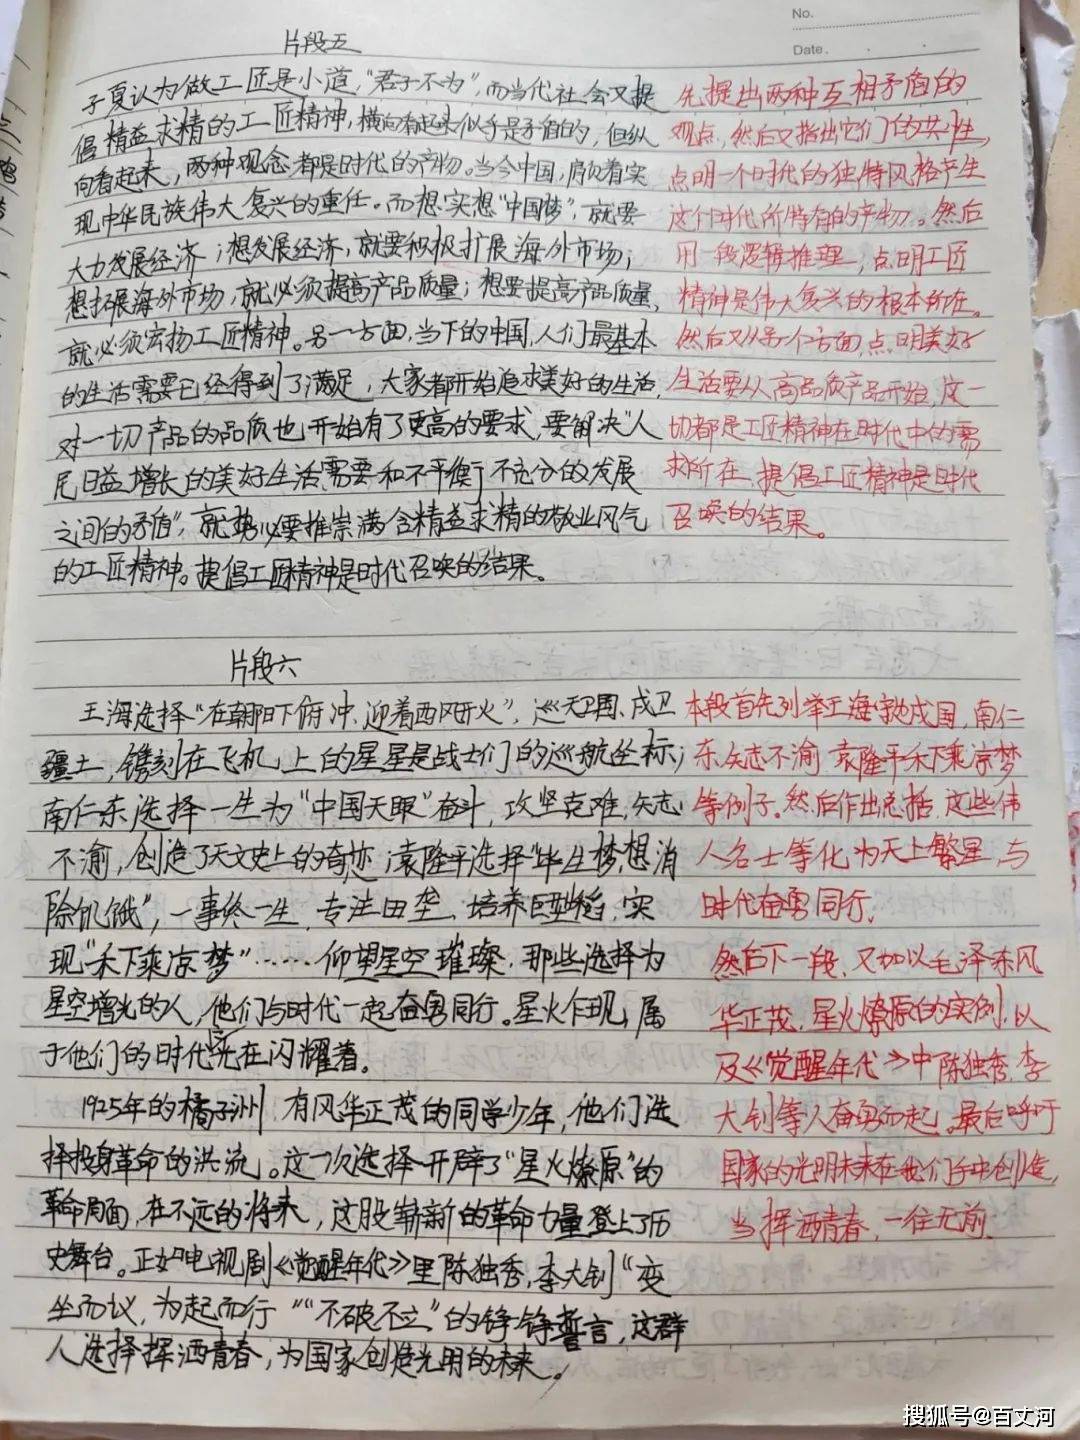 No.
Date.
片段五
子夏认为做工匠是小道，“君子不为”，而当代社会又提
倡精益求精的工匠精神，横向看起来似乎是矛盾的，但纵
向看起来，两种观念都是时代的产物。当今中国，肩负着实
现中华民族伟大复兴的重任。而想实想“中国梦”，就要
大力发展经济；想发展经济，就要积极扩展海外市场；
想拓展海外市场，就必须提高产品质量；想要提高产品质量，
就必须宏扬工匠精神。另一方面，当下的中国，人们最基本
的生活需要已经得到了满足，大家都开始追求美好的生活，
对一切产品的品质也开始有了更高的要求，要解决“人
民日益增长的美好生活需要和不平衡不充分的发展
之间的矛盾”，就势必要推崇满含精益求精的敬业风气
的工匠精神。提倡工匠精神是时代召唤的结果。
先提出两种互相矛盾的
观点，然后又指出它们的共性，
点明一个时代的独特风格产生
这个时代所特有的产物。然后
用一段逻辑推理，点明工匠
精神是伟大复兴的根本所在。
然后又从另个方面，点明美好
生活要从高品质产品开始，这一
切都是工匠精神在时代中的需
求所在，提倡工匠精神是时代
召唤的结果。
片段六
王海选择“在朝日下俯冲，迎着西风开火”，巡天卫国、戍卫
疆土，镌刻在飞机上的星星是战士们的巡航坐标；
南仁东选择一生为“中国天眼”奋斗，攻坚克难，矢志
不渝，创造了天文史上的奇迹；袁隆平选择“毕生梦想消
除饥饿”，一事终一生，专注田垄，培养巨型稻，实
现“禾下乘凉梦”……仰望星空璀璨，那些选择为
星空增光的人，他们与时代一起奋勇同行。星火乍现，属
于他们的时代定光在闪耀着。
1925年的橘子洲，有风华正茂的同学少年，他们选
择投身革命的洪流。这一次选择开辟了“星火燎原”的
革命局面，在不远的将来，这股崭新的革命力量登上了历
史舞台。正如电视剧《觉醒年代》里陈独秀，李大钊“变
坐而议，为起而行”“不破不立”的铮铮誓言，这群
人选择挥洒青春，为国家创造光明的未来。
本段首先列举王海守戍国，南仁
东矢志不渝，袁隆平禾下乘凉梦
等例子。然后作出总括，这些伟
人名士等化为天上繁星，与
时代奋勇同行，
然后下一段，又加以毛泽东风
华正茂，星火燎原的实例，以
及《觉醒年代》中陈独秀，李
大钊等人奋勇而起。最后呼吁
国家的光明未来在我们手中创造，
当挥洒青春，一往无前
搜狐号@百丈河